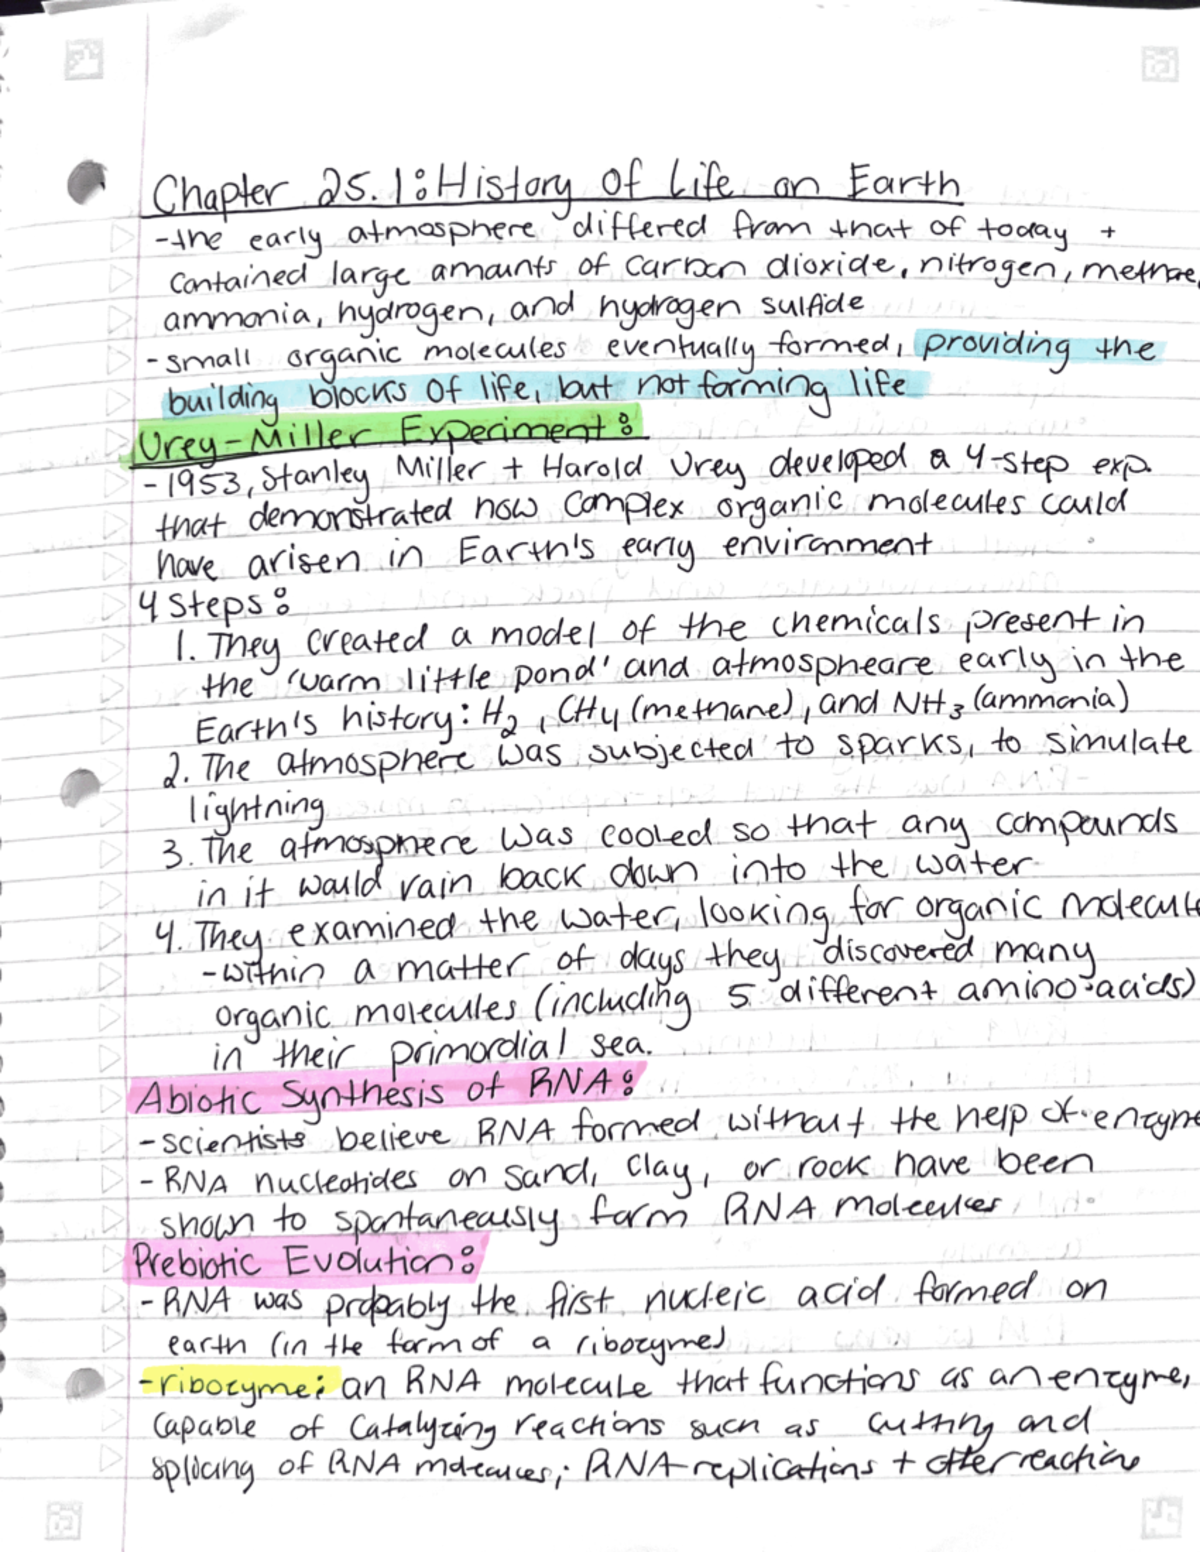 Chapter 25.1: History of Life on Earth
-the early atmosphere differed from that of today +
contained large amounts of carbon dioxide, nitrogen, methane,
ammonia, hydrogen, and hydrogen sulfide
-small organic molecules eventually formed, providing the
building blocks of life, but not forming life
Urey-Miller Experiment:
-1953, Stanley Miller + Harold Urey developed a 4-step exp.
that demonstrated how complex organic molecules could
have arisen in Earth's early environment
4 Steps:
1. They created a model of the chemicals present in
the 'warm little pond' and atmospheare early in the
Earth's history: H2, CH4 (methane), and NH3 (ammonia)
2. The atmosphere was subjected to sparks, to simulate
lightning
3. The atmosphere was cooled so that any compounds
in it would rain back down into the water
4. They examined the water, looking for organic molecule
-within a matter of days they discovered many
organic molecules (including 5 different amino acids)
in their primordial sea.
Abiotic Synthesis of RNA:
-scientists believe RNA formed without the help of enzyme
-RNA nucleotides on sand, clay, or rock have been
shown to spontaneously form RNA molecules
Prebiotic Evolution:
-RNA was probably the first nucleic acid formed on
earth (in the form of a ribozyme)
-ribozyme: an RNA molecule that functions as an enzyme,
capable of catalyzing reactions such as cutting and
splicing of RNA molecules; RNA replications + other reactions